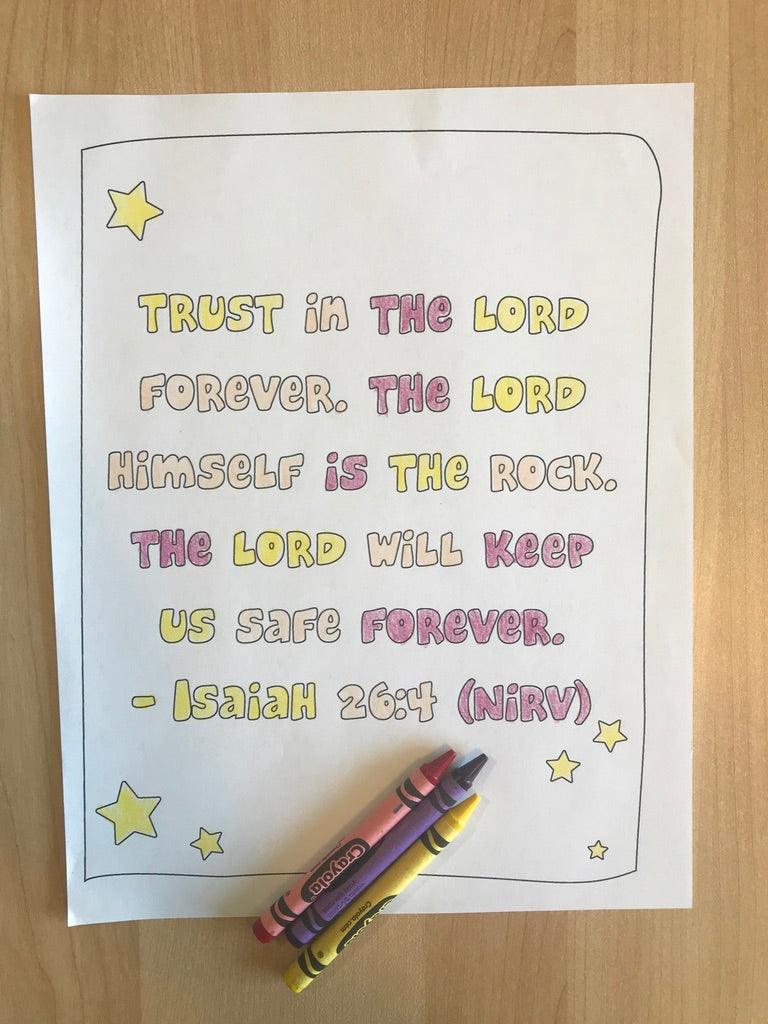 TRUST in THE LORD
FOREVER. THE LORD
HimSELF is THE ROCK.
THE LORD WiLL KEEP
US SaFE FOREVER.
- ISaiaH 26:4 (NiRV)
Crayola
Crayola.com